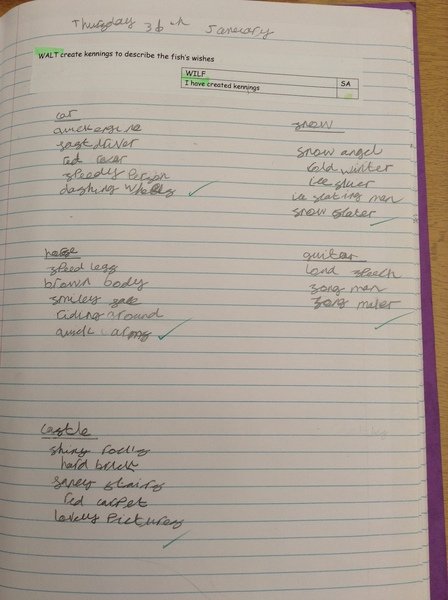 Thursday 30th January
WALT create kennings to describe the fish's wishes
WILF
SA
I have created kennings
car
quick engine
fast driver
red racer
speedy Person
dashing wheels
snow
snow angel
cold winter
ice
ice skating man
snow skater
speed legs
brown body
smiley
riding around
quick
guitar
loud speech
song man
song maker
castle
shiny rocks
hard brick
stairs
red carpet
lovely Pictures